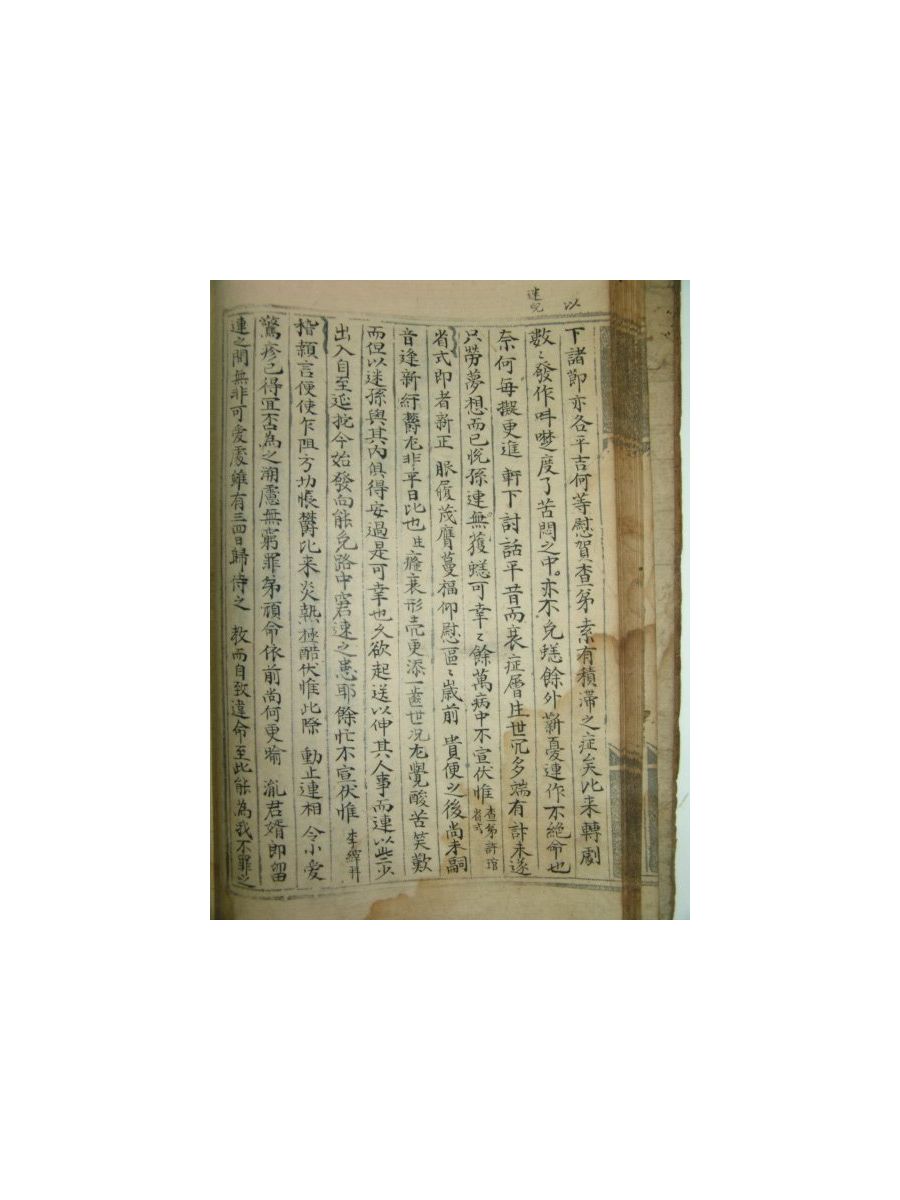 以
迷兒
下諸節亦各平吉何等慰賀查弟素有積滯之症矣比來轉劇
數〻發作叫噤度了苦悶之中亦不免蟋餘外薪憂連作不絕命也
奈何每擬更進 軒下討話平昔而衰症層生世冗多端有計未遂
只勞夢想而已悅孫連無獲蟋可幸〻餘萬病中不宣伏惟 查弟許琯 省式
省式即者新正 服履茂膺蔓福仰慰區〻歲前 貴便之後尚未嗣
音逢新紆鬱尤非平日比也生癃衰形壳更添一齒世況尤覺酸苦笑歎
而但以迷孫與其內俱得安過是可幸也久欲起送以伸其人事而連以些少
出入自至延拕今始發向能免路中窘速之患耶 餘忙不宣伏惟 李繹拜
稽顙言便使乍阻方切悵鬱比來炎熱極酷伏惟此際 動止連相 令小愛
驚疹已得宜否為之溯慮無窮罪弟頑命依前尚何更喻 胤君婿即留
連之間無非可愛處雖有三四日歸侍之 教而自致違命至此能為我不罪之